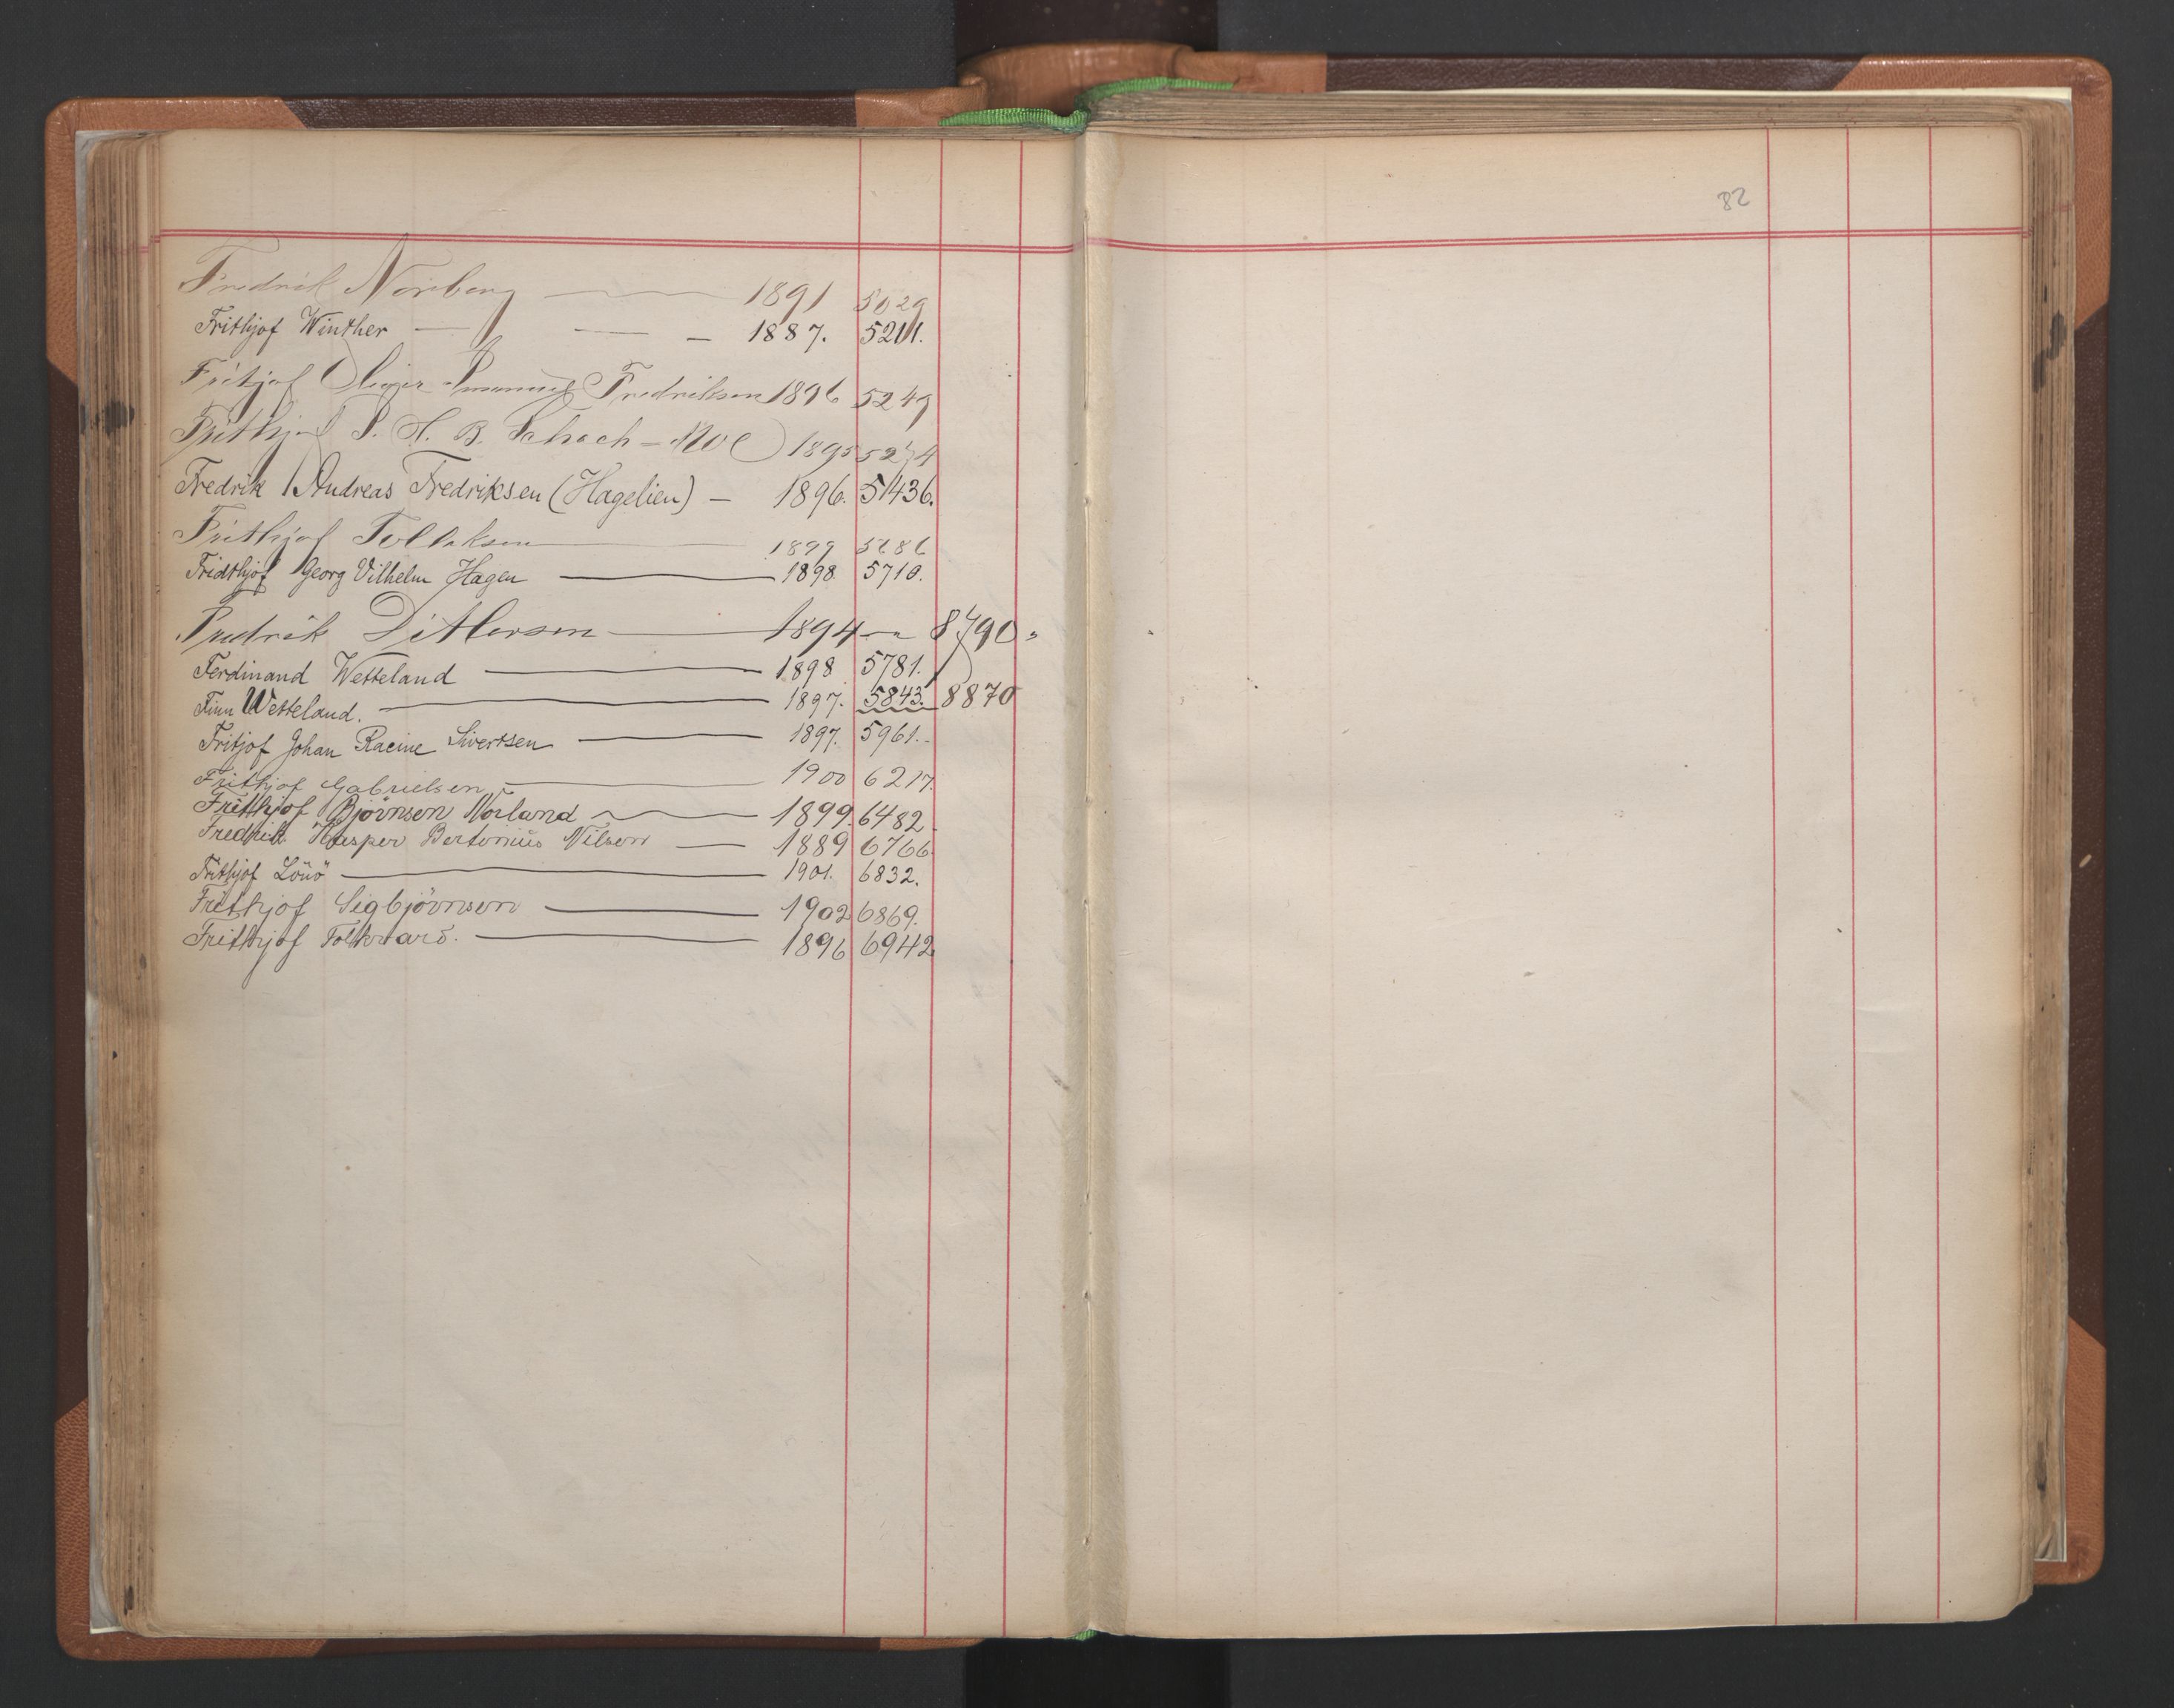 82
Fredrik Noreberg 1891 5029
Frithjof Winther 1887. 5211.
Fritjof Fredriksen 1896 5249
Frithjof P. H. B. Schach 1895
Fredrik Andreas Fredriksen (Hagelien) 1896. 5436.
Frithjof Tollaksen 1899
Fridthjof Georg Vilhelm Hagen 1898. 5710.
Fredrik Ditlorsen 1894 8790
Ferdinand Wetteland 1898 5781.
Finn Wetteland. 1897. 5843. 8870
Fritjof Johan Racine Sivertsen 1897. 5961.
Frithjof Gabrielsen 1900 6217.
Frithjof Bjørnsen Norland 1899. 6482
Fredrik Kasper Bertonius Nilsen 1889 6766
Frithjof Lönö 1901. 6832.
Frithjof Sigbjörnsen 1902 6869.
Frithjof Folkvard. 1896 6942